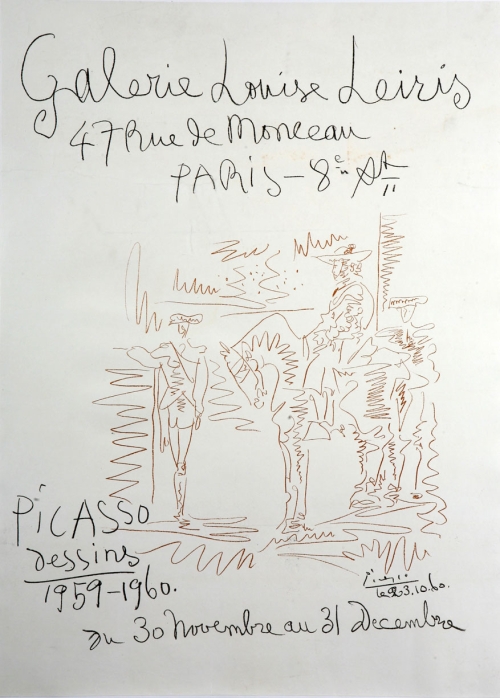 Galerie Louise Leiris
47 Rue de Monceau
PARIS - 8e
PICASSO
dessins
1959-1960.
Picasso
le 23.10.60.
Du 30 Novembre au 31 Decembre